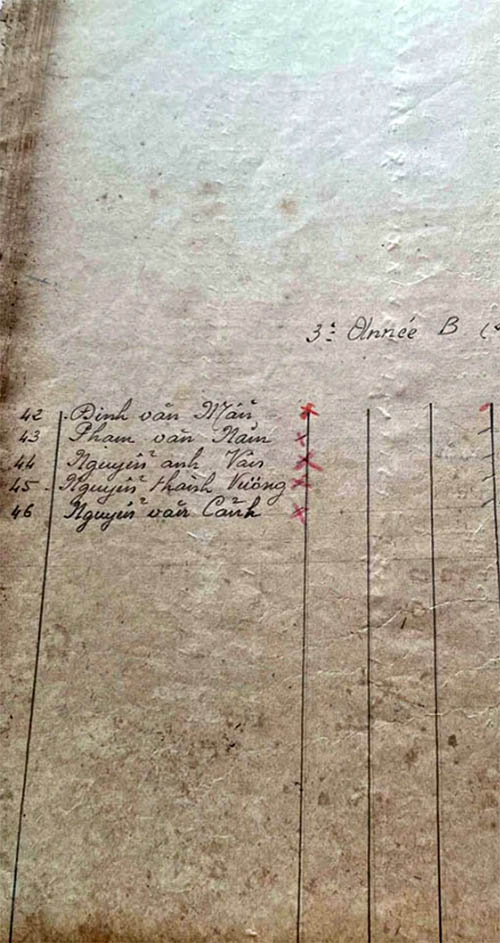 3e Année B (
42 Đinh văn Mẫn
43 Phạm văn Năm
44 Nguyễn anh Vân
45 Nguyễn thành Vương
46 Nguyễn văn Cảnh